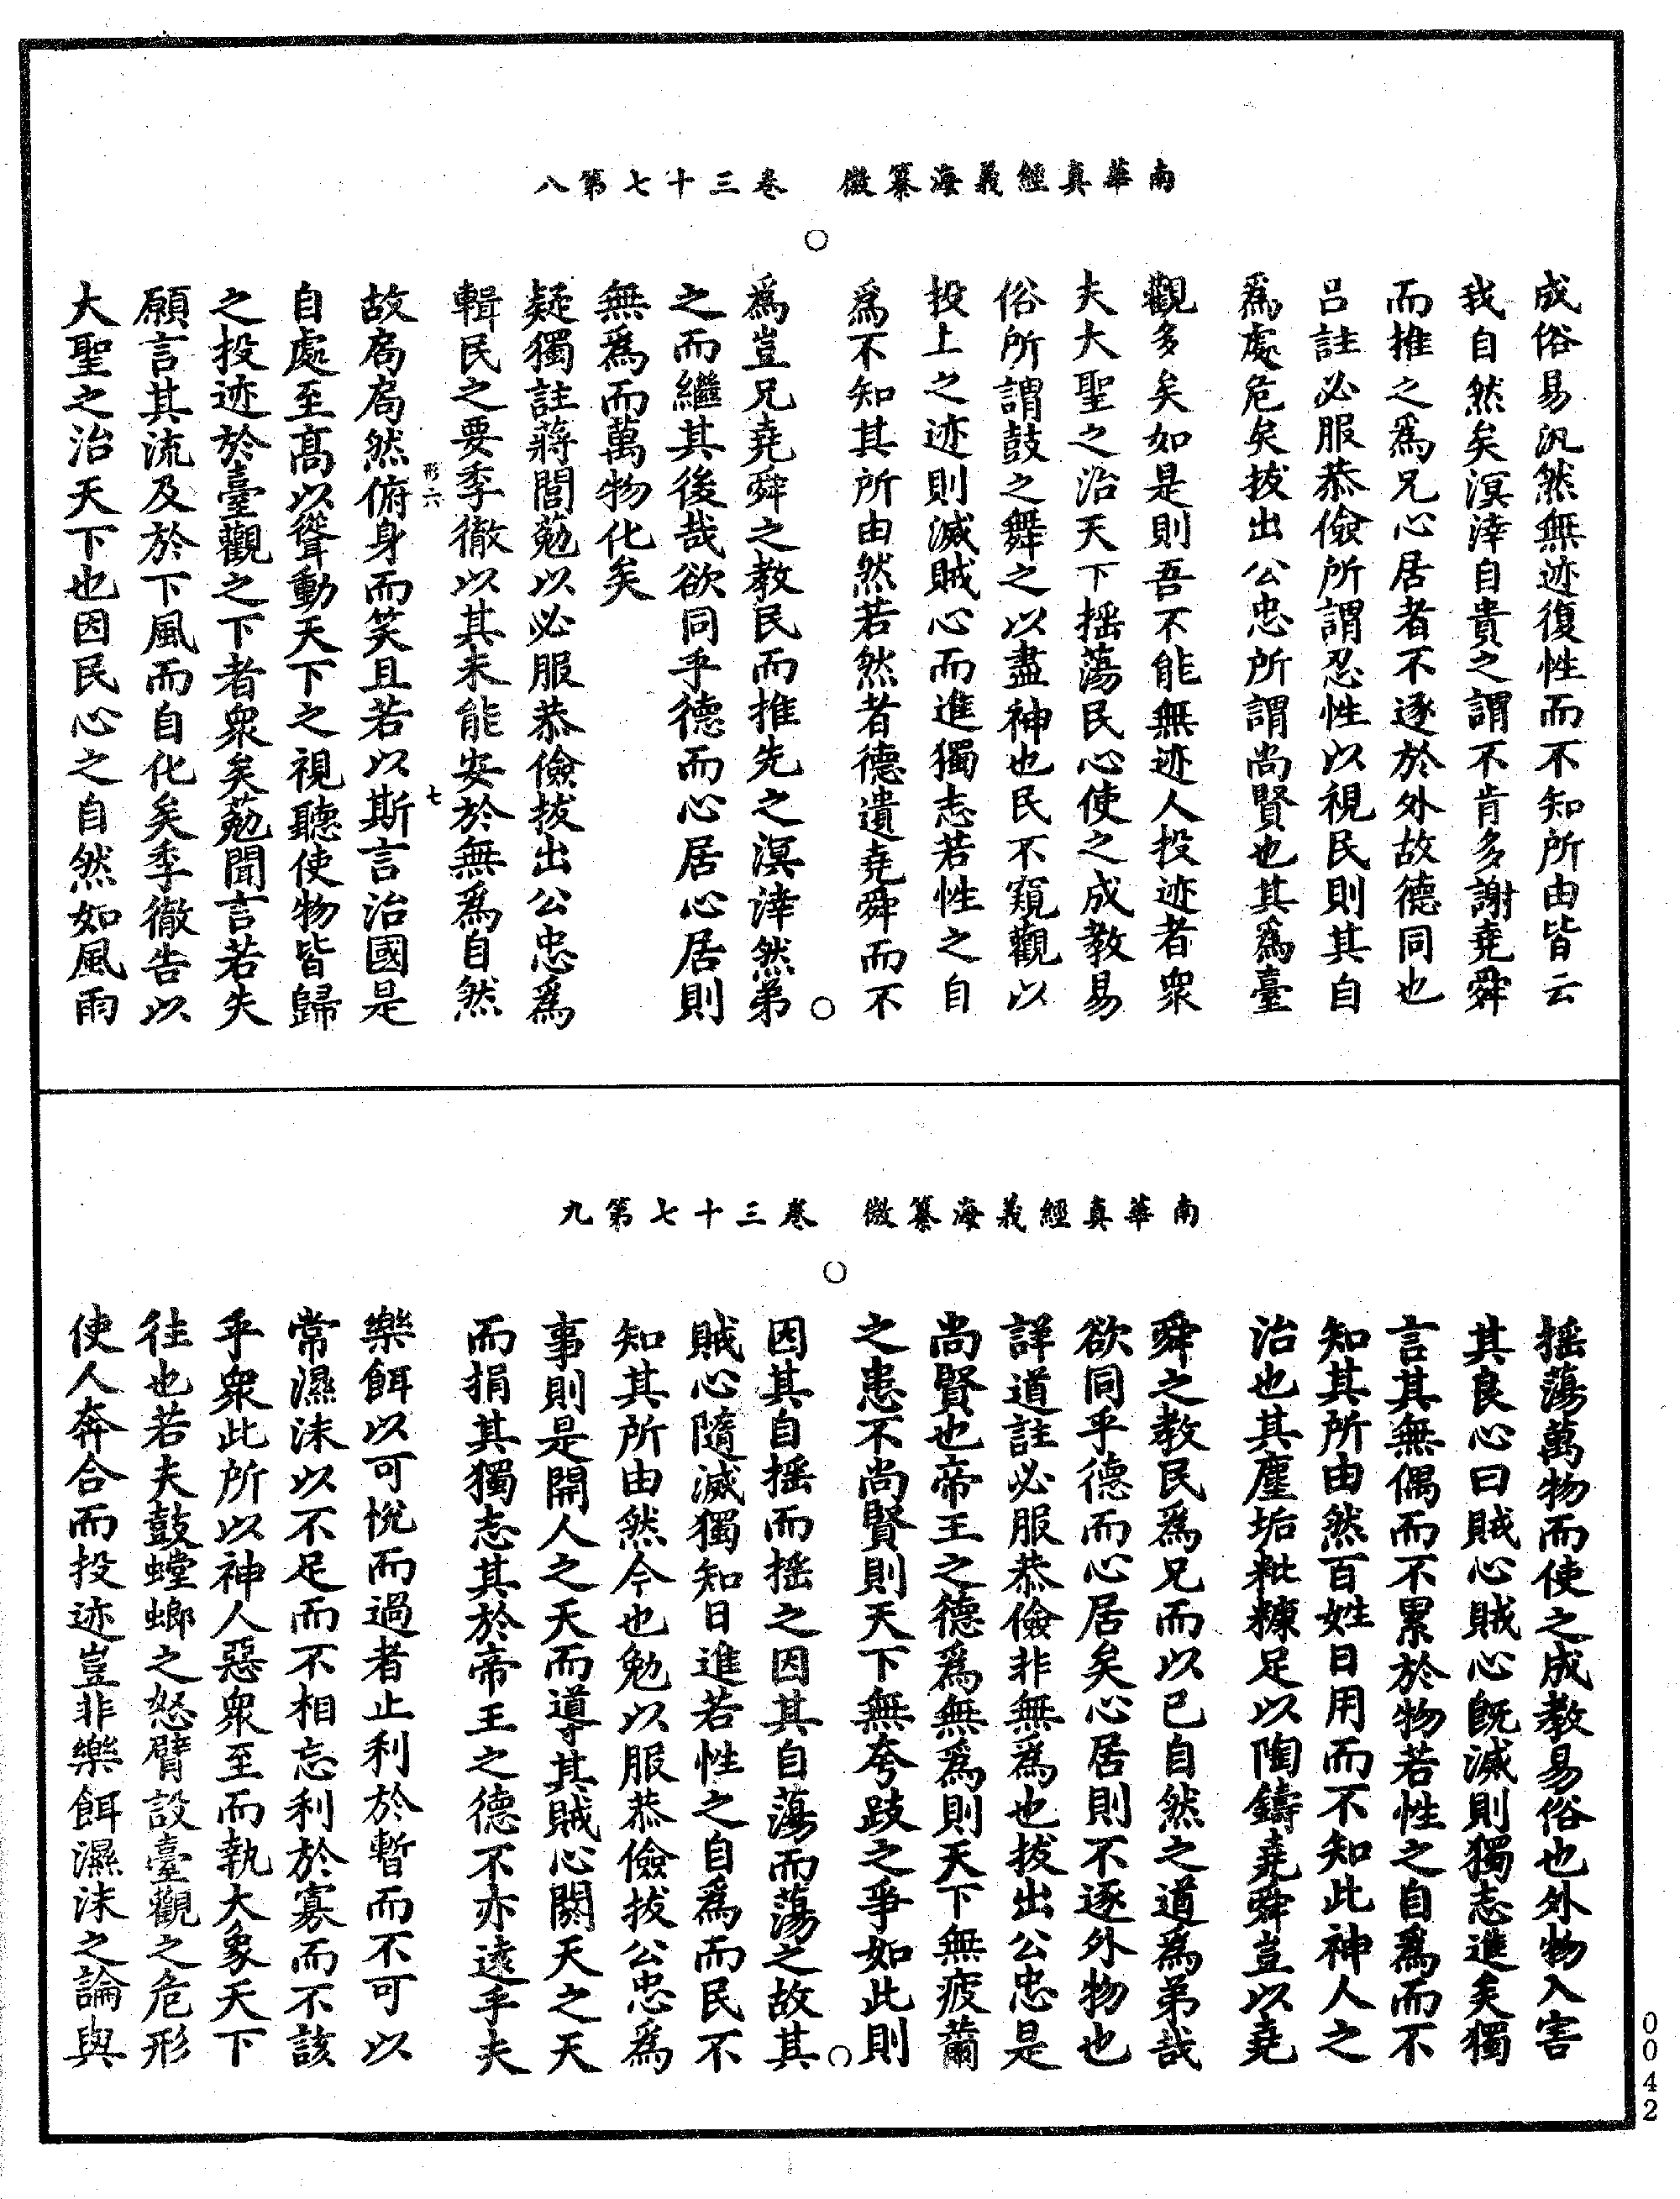 南華真經義海纂微　卷三十七第八
成俗易汎然無迹復性而不知所由皆云
我自然矣溟涬自貴之謂不肯多謝堯舜
而推之為兄心居者不逐於外故德同也
呂註必服恭儉所謂忍性以視民則其自
為處危矣拔出公忠所謂尚賢也其為臺
觀多矣如是則吾不能無迹人投迹者衆
夫大聖之治天下揺蕩民心使之成教易
俗所謂鼓之舞之以盡神也民不窺觀以
投上之迹則滅賊心而進獨志若性之自
為不知其所由然若然者德遺堯舜而不
為豈兄堯舜之教民而推先之溟涬然弟
之而繼其後哉欲同乎德而心居心居則
無為而萬物化矣
疑獨註蔣閭葂以必服恭儉拔出公忠為
輯民之要季徹以其未能安於無為自然
形六　七
故局局然俯身而笑且若以斯言治國是
自處至高以聳動天下之視聽使物皆歸
之投迹於臺觀之下者衆矣葂聞言若失
願言其流及於下風而自化矣季徹告以
大聖之治天下也因民心之自然如風雨
南華真經義海纂微　卷三十七第九
揺蕩萬物而使之成教易俗也外物入害
其良心曰賊心賊心既滅則獨志進矣獨
言其無偶而不累於物若性之自為而不
知其所由然百姓日用而不知此神人之
治也其塵垢粃糠足以陶鑄堯舜豈以堯
舜之教民為兄而以已自然之道為弟哉
欲同乎德而心居矣心居則不逐外物也
詳道註必服恭儉非無為也拔出公忠是
尚賢也帝王之德為無為則天下無疲薾
之患不尚賢則天下無夸跂之爭如此則
因其自揺而揺之因其自蕩而蕩之故其
賊心隨滅獨知日進若性之自為而民不
知其所由然今也勉以服恭儉拔公忠為
事則是開人之天而導其賊心閼天之天
而捐其獨志其於帝王之德不亦遠乎夫
樂餌以可悅而過者止利於暫而不可以
常濕沫以不足而不相忘利於寡而不該
乎衆此所以神人惡衆至而執大象天下
徃也若夫鼓螳螂之怒臂設臺觀之危形
使人奔合而投迹豈非樂餌濕沫之論與
0042